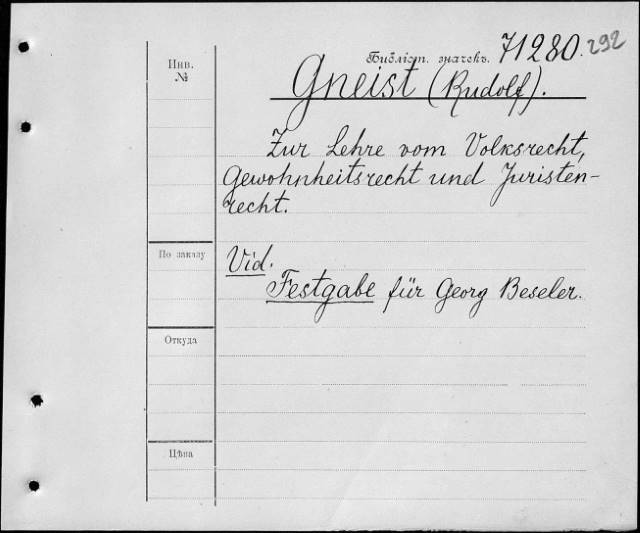 Инв.
№
Библіот. значекъ. 71280. 292
Gneist (Rudolf).
Zur Lehre vom Volksrecht,
Gewohnheitsrecht und Juristen-
recht.
По заказу
Vid.
Festgabe für Georg Beseler.
Откуда
Цѣна